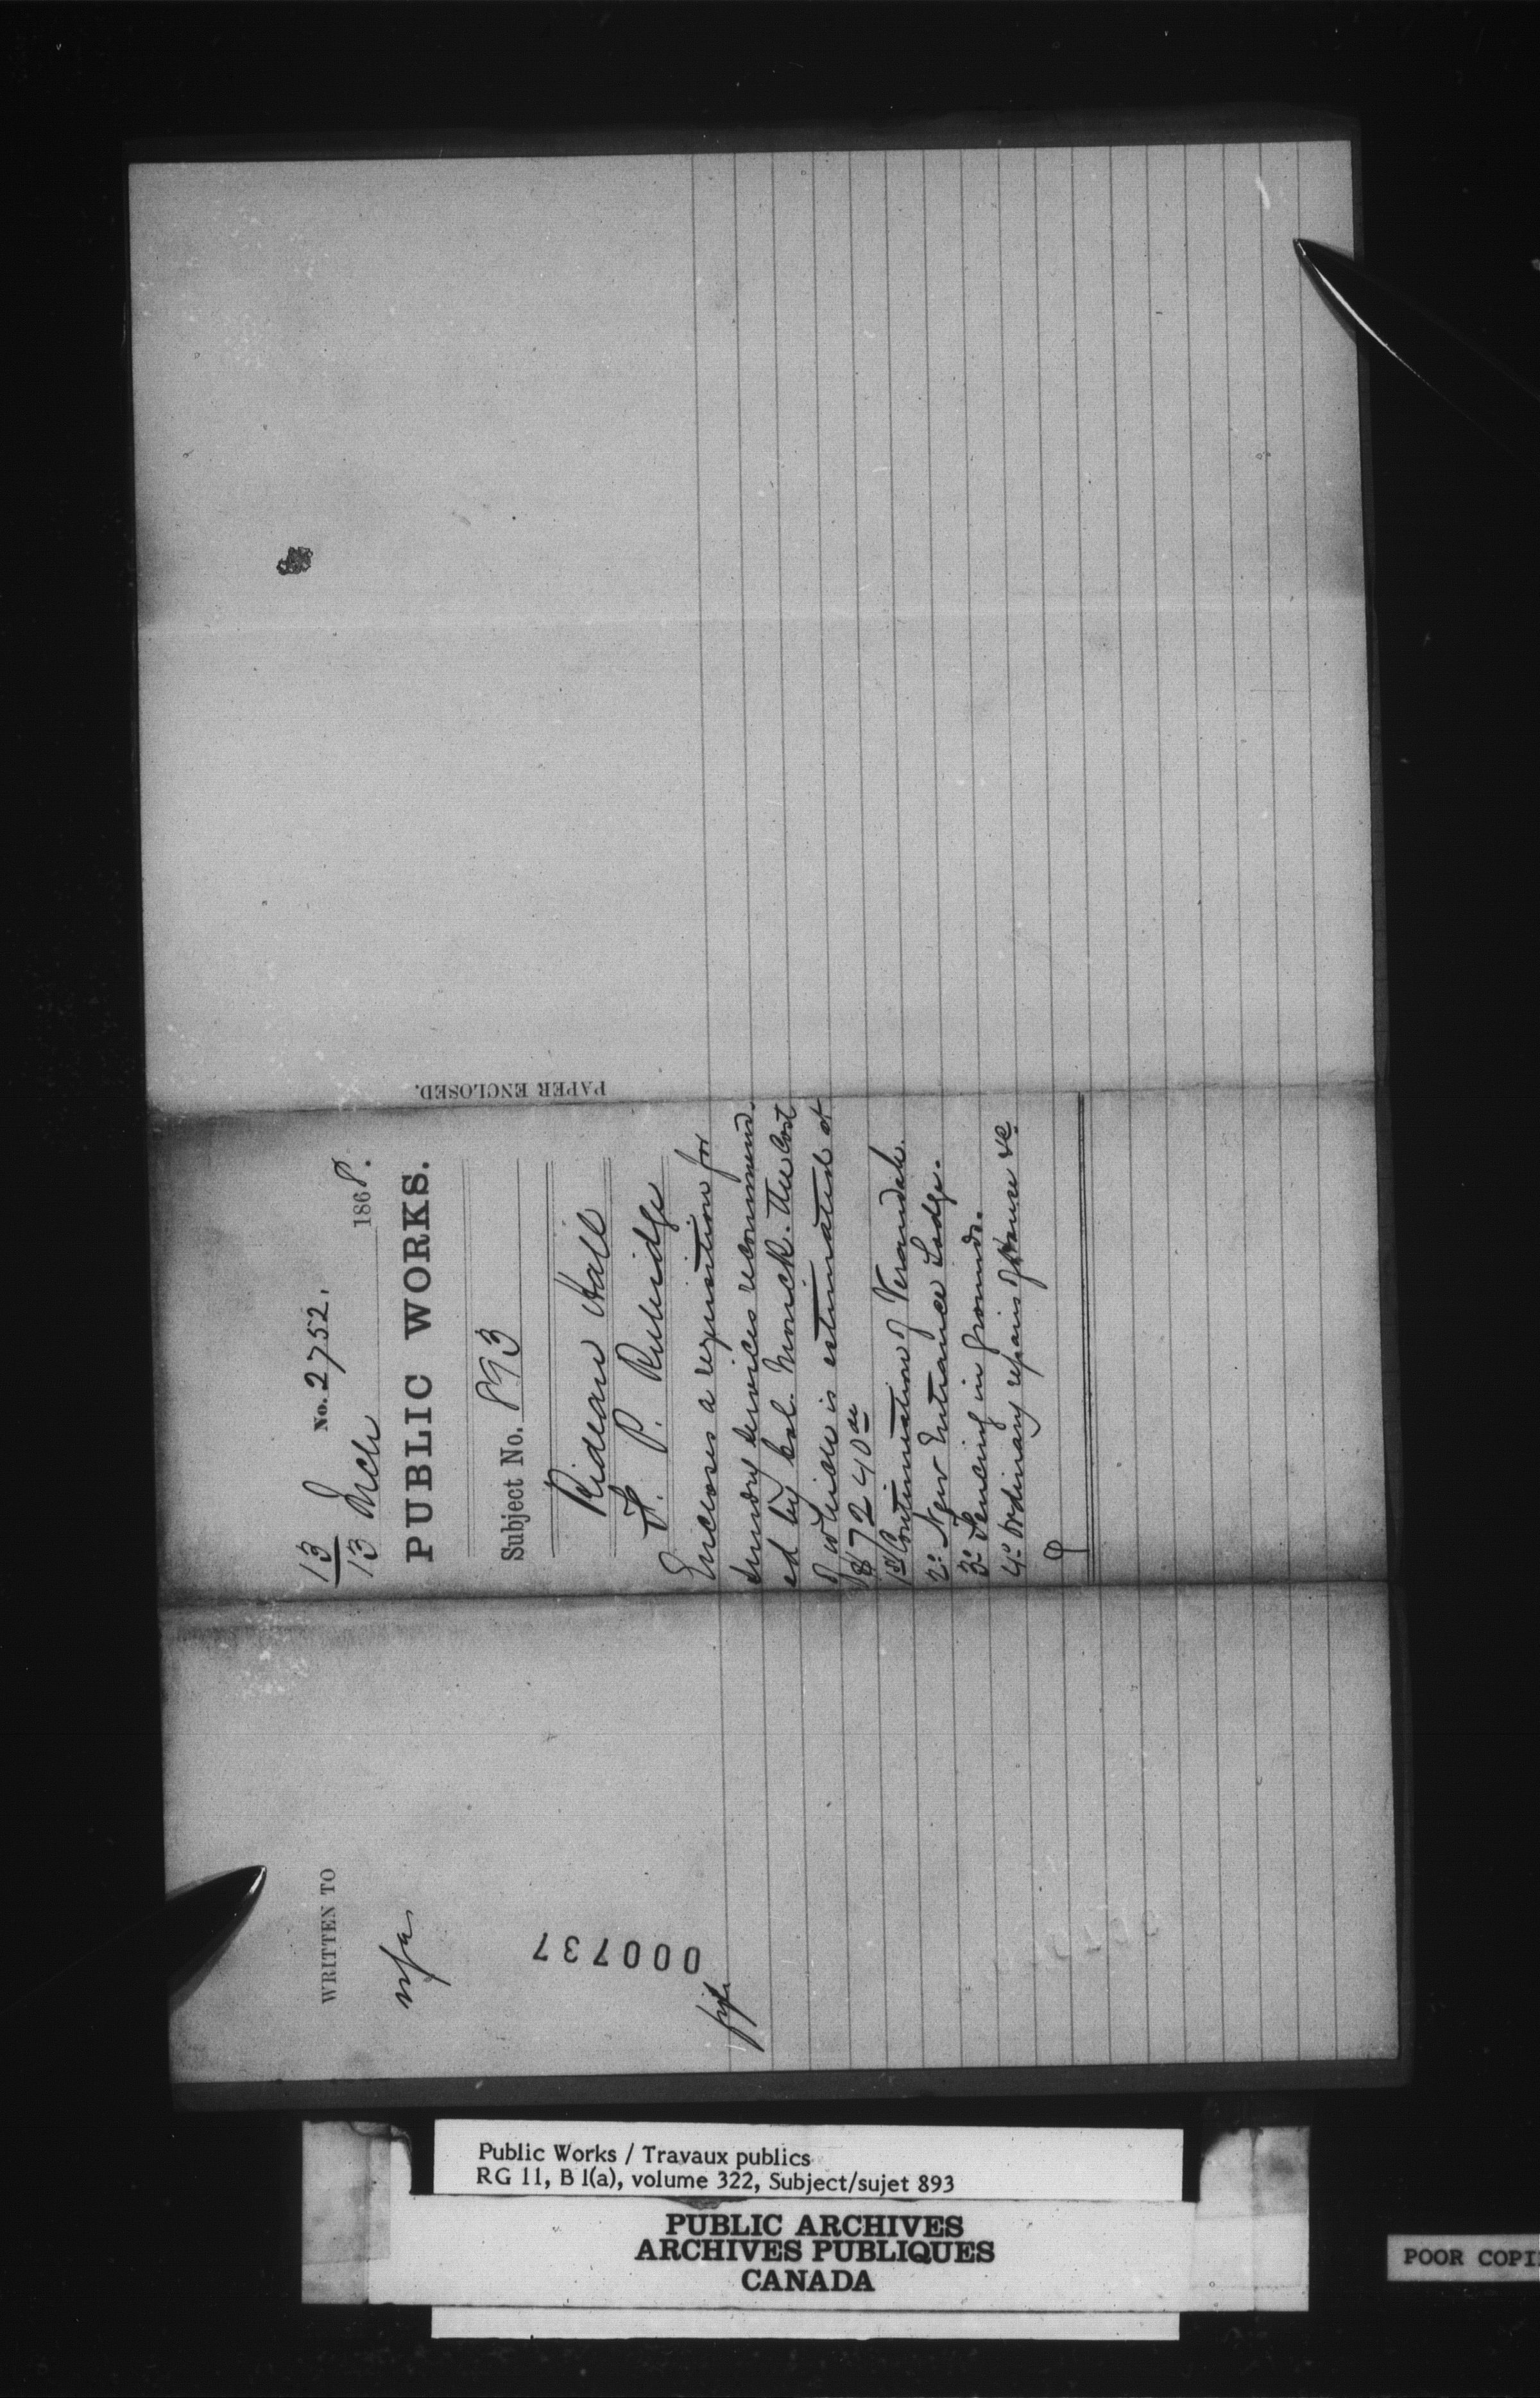 13
No. 2752.
13 Mch 1868.
PUBLIC WORKS.
Subject No. 893
Rideau Hall
F. P. Rubidge
Encloses a requisition for
sundry services recommend-
ed by Col. Monck. The Cost
of which is estimated at
$7240 00
1st Continuation of Verandah.
2o New Entrance Lodge.
3o Fencing in grounds.
4o Ordinary repairs of House &c.
PAPER ENCLOSED.
WRITTEN TO
000737
Public Works / Travaux publics
RG 11, B 1(a), volume 322, Subject/sujet 893
PUBLIC ARCHIVES
ARCHIVES PUBLIQUES
CANADA
POOR COPI